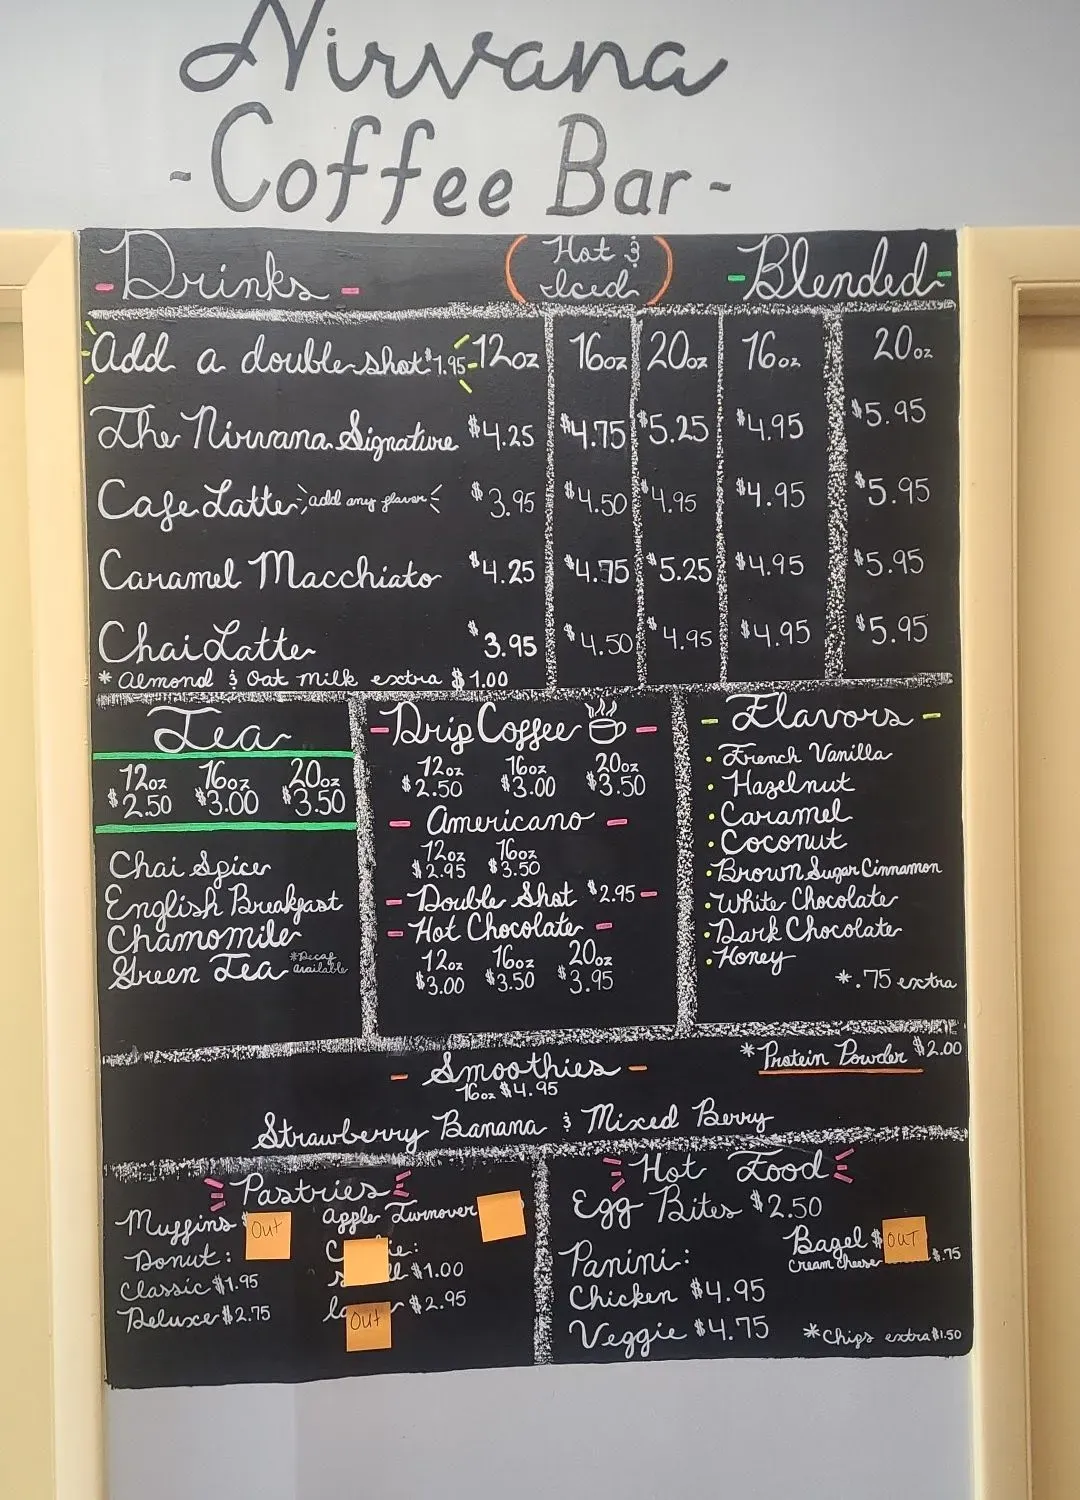 Nirvana
-Coffee Bar-
-Drinks- (Hot & Iced) -Blended-
Add a double shot $1.95 12oz 16oz 20oz 16oz 20oz
The Nirvana Signature $4.25 $4.75 $5.25 $4.95 $5.95
Cafe Latte add any flavor $3.95 $4.50 $4.95 $4.95 $5.95
Caramel Macchiato $4.25 $4.75 $5.25 $4.95 $5.95
Chai Latte $3.95 $4.50 $4.95 $4.95 $5.95
* Almond & Oat milk extra $1.00
Tea
12oz 16oz 20oz
$2.50 $3.00 $3.50
Chai Spice
English Breakfast
Chamomile
Green Tea *Decaf available
- Drip Coffee -
12oz 16oz 20oz
$2.50 $3.00 $3.50
- Americano -
12oz 16oz
$2.95 $3.50
- Double Shot $2.95 -
- Hot Chocolate -
12oz 16oz 20oz
$3.00 $3.50 $3.95
- Flavors -
• French Vanilla
• Hazelnut
• Caramel
• Coconut
• Brown Sugar Cinnamon
• White Chocolate
• Dark Chocolate
• Honey
*.75 extra
- Smoothies -
16oz $4.95
* Protein Powder $2.00
Strawberry Banana & Mixed Berry
Pastries
Muffins $ Out
Donut:
Classic $1.95
Deluxe $2.75
Apple Turnover
$1.00
Out $2.95
Hot Food
Egg Bites $2.50
Bagel $ OUT
cream cheese $.75
Panini:
Chicken $4.95
Veggie $4.75
*Chips extra $1.50